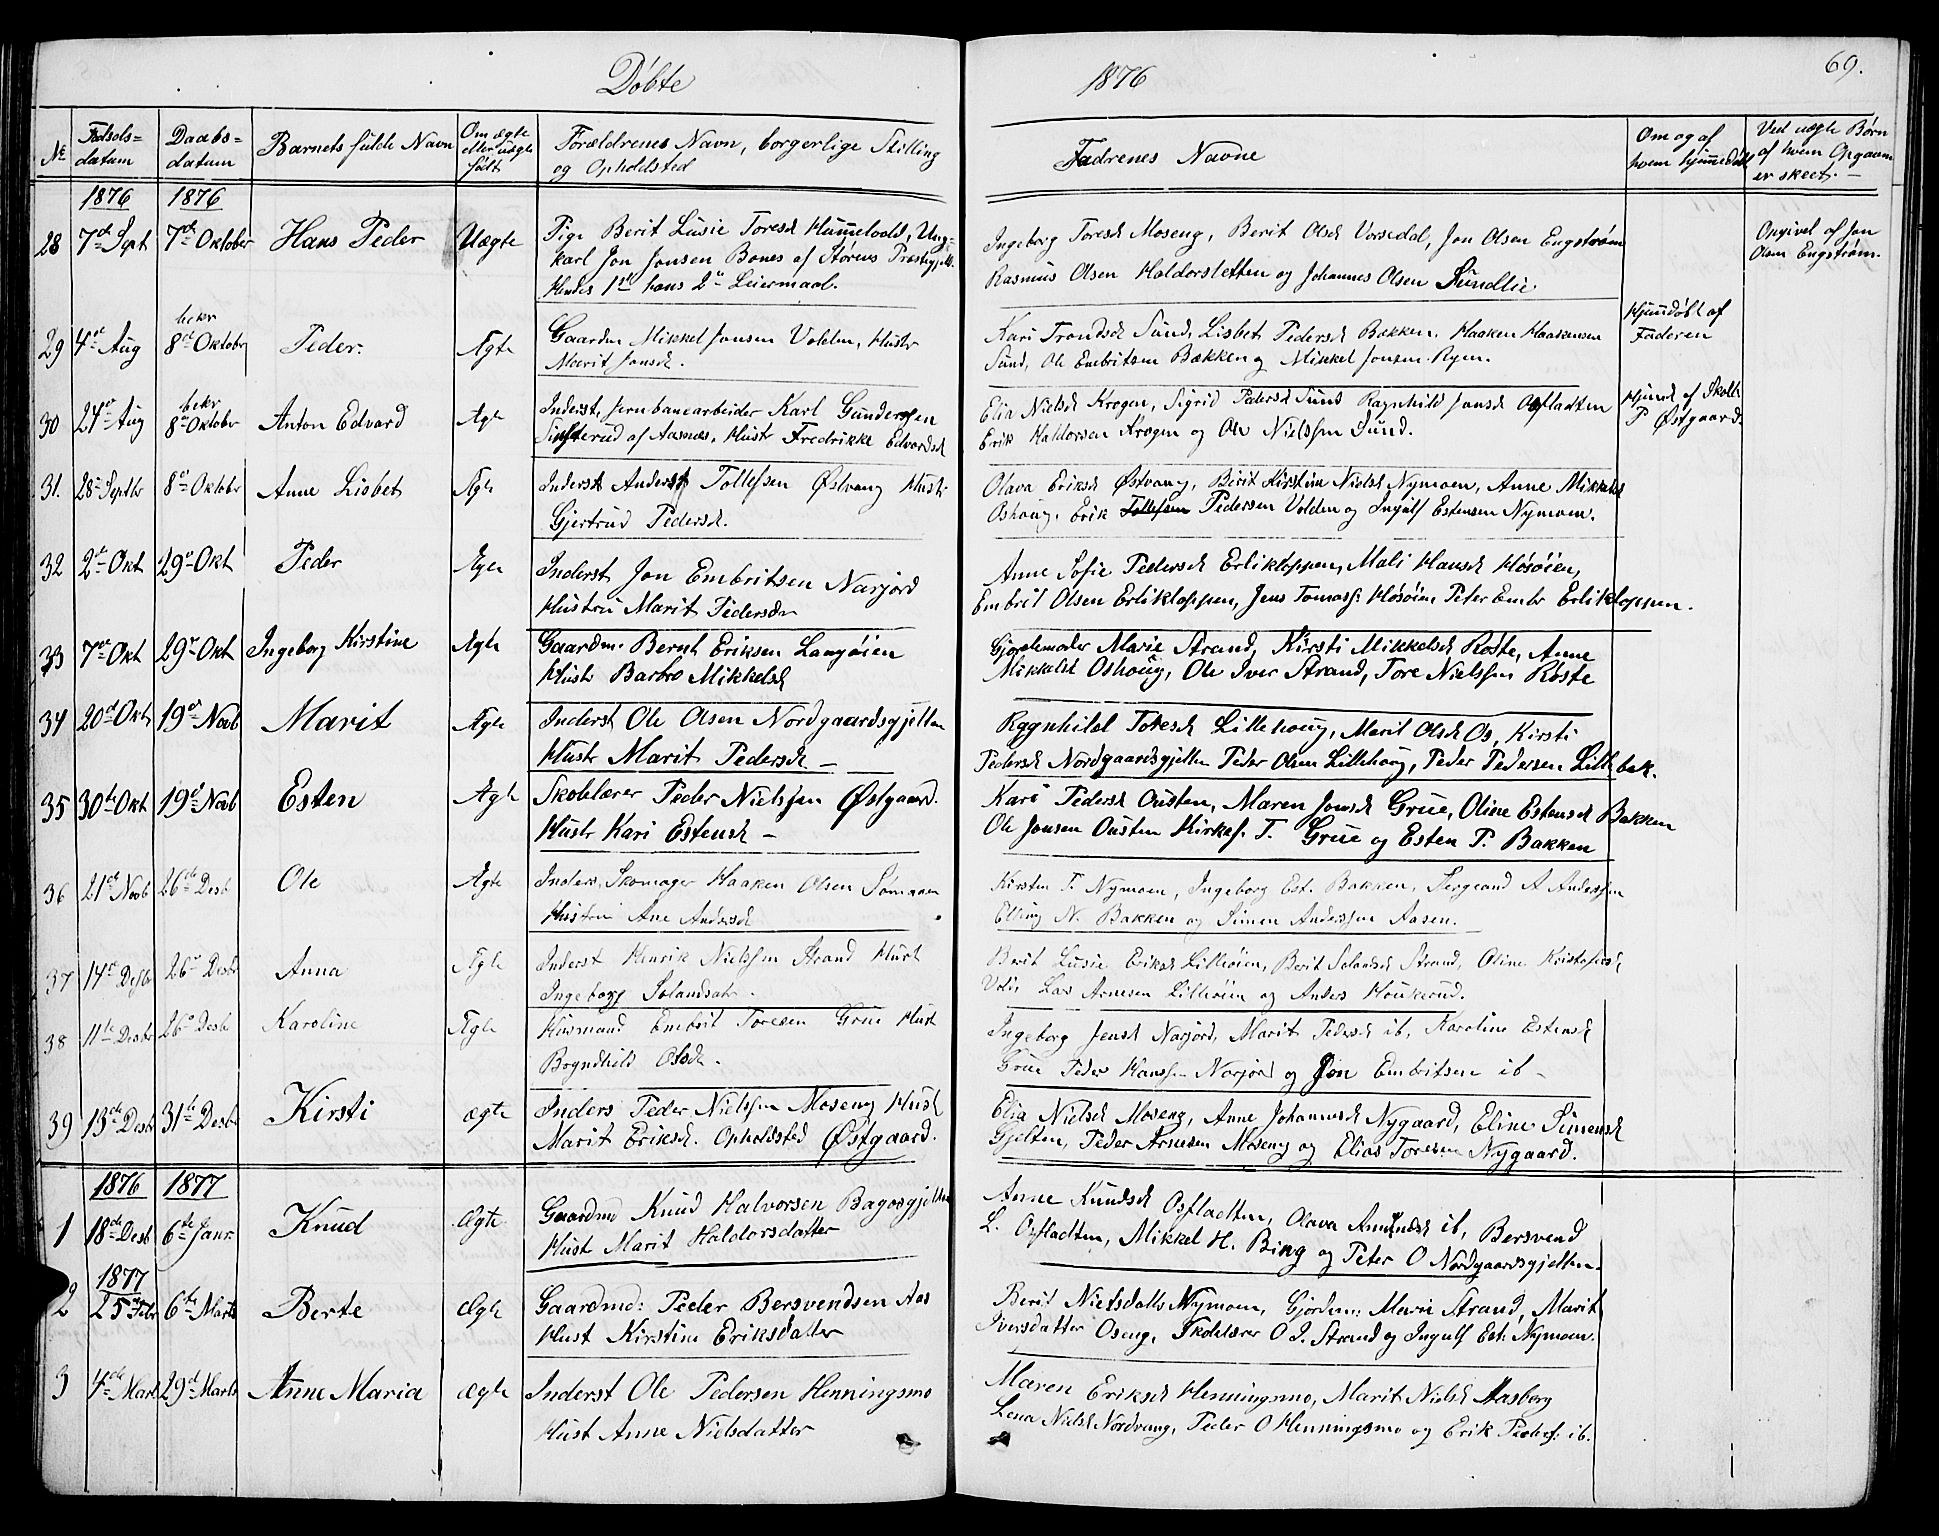 Døbte 1876 69.
No Fødsels= datum Daabs= datum Barnets fulde Navn Om ægte eller uægte født Forældrenes Navn, borgerlige Stilling og Opholdsted Faddrenes Navne Om og af hvem hjemmedøbt Ved uægte Børn af hvem Opgaven er skeet.
1876 1876
28 7de Sept 7de Oktober Hans Peder Uægte Pige Berit Lusie Toresd Hummelvold, Ung=
karl Jon Jonsen Bones af Størens Præstegjeld.
Hendes 1ste hans 2det Leiermaal.
Ingeborg Toresd Moseng, Berit Olsd Vorsedal, Jon Olsen Engstrøm
Rasmus Olsen Haldorsletten og Johannes Olsen Sundlie.
Opgivet af Jon
Olsen Engstrøm.
29 4de Aug bekr 8de Oktobr Peder. Ægte Gaardm Mikkel Jonsen Volden, Hustr
Marit Jonsd.
Kari Trondsd Sund, Lisbet Pedersd Bakken, Haaken Haakensen
Sund, Ole Embritsen Bækken og Mikkel Jonsen Ryen.
Hjemdøbt af
Faderen
30 24de Aug bekr 8de Oktobr Anton Edvard Ægte Inderst, Jernbanearbeider Karl Gundersen
af Aasnes, Hustr Fredrikke Edvardsd
Elia Nielsd Krogen, Sigrid Pedersd Sund Ragnhild Jonsd Osfladten
Erik Haldorsen Krogen og Ole Nielssen Sund.
Hjemd af Skoll
P Østgaard.
31. 28de Septbr 8de Oktobr Anne Lisbet Ægte Inderst Anders Tollefsen Østvang Hustr
Gjertrud Pedersd.
Olava Eriksd Østvang, Berit Kirstine Nielsd Nymoen, Anne Mikkelsd
Oshoug, Erik Tollefsen Pedersen Volden og Ingulf Estensen Nymoen.
32 2de Okt 29de Okt Peder Ægte Inderst Jon Embritsen Narjord
Hustru Marit Pedersdr
Anne Sofie Pedersd Erlikloppen, Mali Hansd Høsøien,
Embrit Olsen Erlikloppen, Jens Tomass. Høsøien Peter Embr Erlikloppen.
33 7de Okt 29de Okt Ingeborg Kirstine Ægte Gaardm. Bernt Eriksen Langøien
Hustr Barbro Mikkelsd
Gjordemoder Marie Strand, Kirsti Mikkelsd Røste, Anne
Mikkelsd Oshoug, Ole Iver Strand, Tore Nielssen Røste
34 20de Okt 19de Novb Marit Ægte Inderst Ole Olsen Nordgaardsgjelten
Hustr Marit Pedersd
Ragnhild Tokesd Lillehoug, Marit Olsd Os, Kirsti
Pedersd Nordgaardsgjelten Peder Olsen Lillehoug, Peder Pedersen Lillebek.
35 30te Okt 19de Novb Esten Ægte Skolelærer Peder Nielssen Østgaard.
Hustr Kari Estensd
Kari Pedersd Ousten, Maren Jonsd Grue, Oline Estensd Bakken
Ole Jonsen Ousten Kirkes. T. Grue og Esten P. Bakken
36 21de Novb 26de Desb Ole Ægte Inders, Skomager Haaken Olsen Sømoen
Hustru Ane Andersd
Kirsten T. Nymoen, Ingeborg Est. Bakken, Sergeand A Anderssen
Elling N. Bakken og Simen Anderssen Aasen.
37 14de Desbr 26de Desbr Anna Ægte Inderst Henrik Nielssen Strand Hust
Ingeborg
Berit Lusie Eriksd Lilleøien, Berit Strand, Oline Kristofersd
Lars Arnesen Lilleøien og Anders Houkerud.
38 11te Desbr 26de Desb Karoline Ægte Husmand Embrit Toresen Grue Hust
Olsd.
Ingeborg Jensd Narjord, Marit Pedersd ib, Karoline Estensd
Grue Peder Hanssen Narjord og Jon Embritsen ib
39 13de Desb 31te Desbr Kirsti ægte Inders Peder Nielssen Moseng Hust
Marit Eriksd. Opholdsted Østgaard.
Elia Nielsd Moseng, Anne Johannesd Nygaard, Eline Simensd
Gjelten, Peder Arnesen Moseng og Elias Toresen Nygaard.
1876 1877
1 18de Desb 6te Janr. Knud Ægte Gaardmd Knud Halvorsen Bagosgjelten
Hust Marit Haldorsdatter
Anne Knudsd Osfladten, Olava Amundsd ib, Bersvend
L. Osfladten, Mikkel H. Bing og Peter O Nordgaardsgjelten.
1877
2 25de Febr 6te Marts Berte Ægte Gaardmd: Peder Bersvendsen Aas
Hust Kirstine Eriksdatter
Berit Nielsdatter Nymoen, Gjordem: Marie Strand, Marit
Iversdatter Oseng, Skolelærer O J. Strand og Ingulf Est. Nymoen.
3 4de Mart 29de Marts Anne Maria ægte Inderst Ole Pedersen Henningsmo
Hust Anne Nielsdatter
Maren Eriksd Henningsmo, Marit Nielsd Aasberg
Lena Nielsd Nordvang, Peder O Henningsmo og Erik Peders: ib.